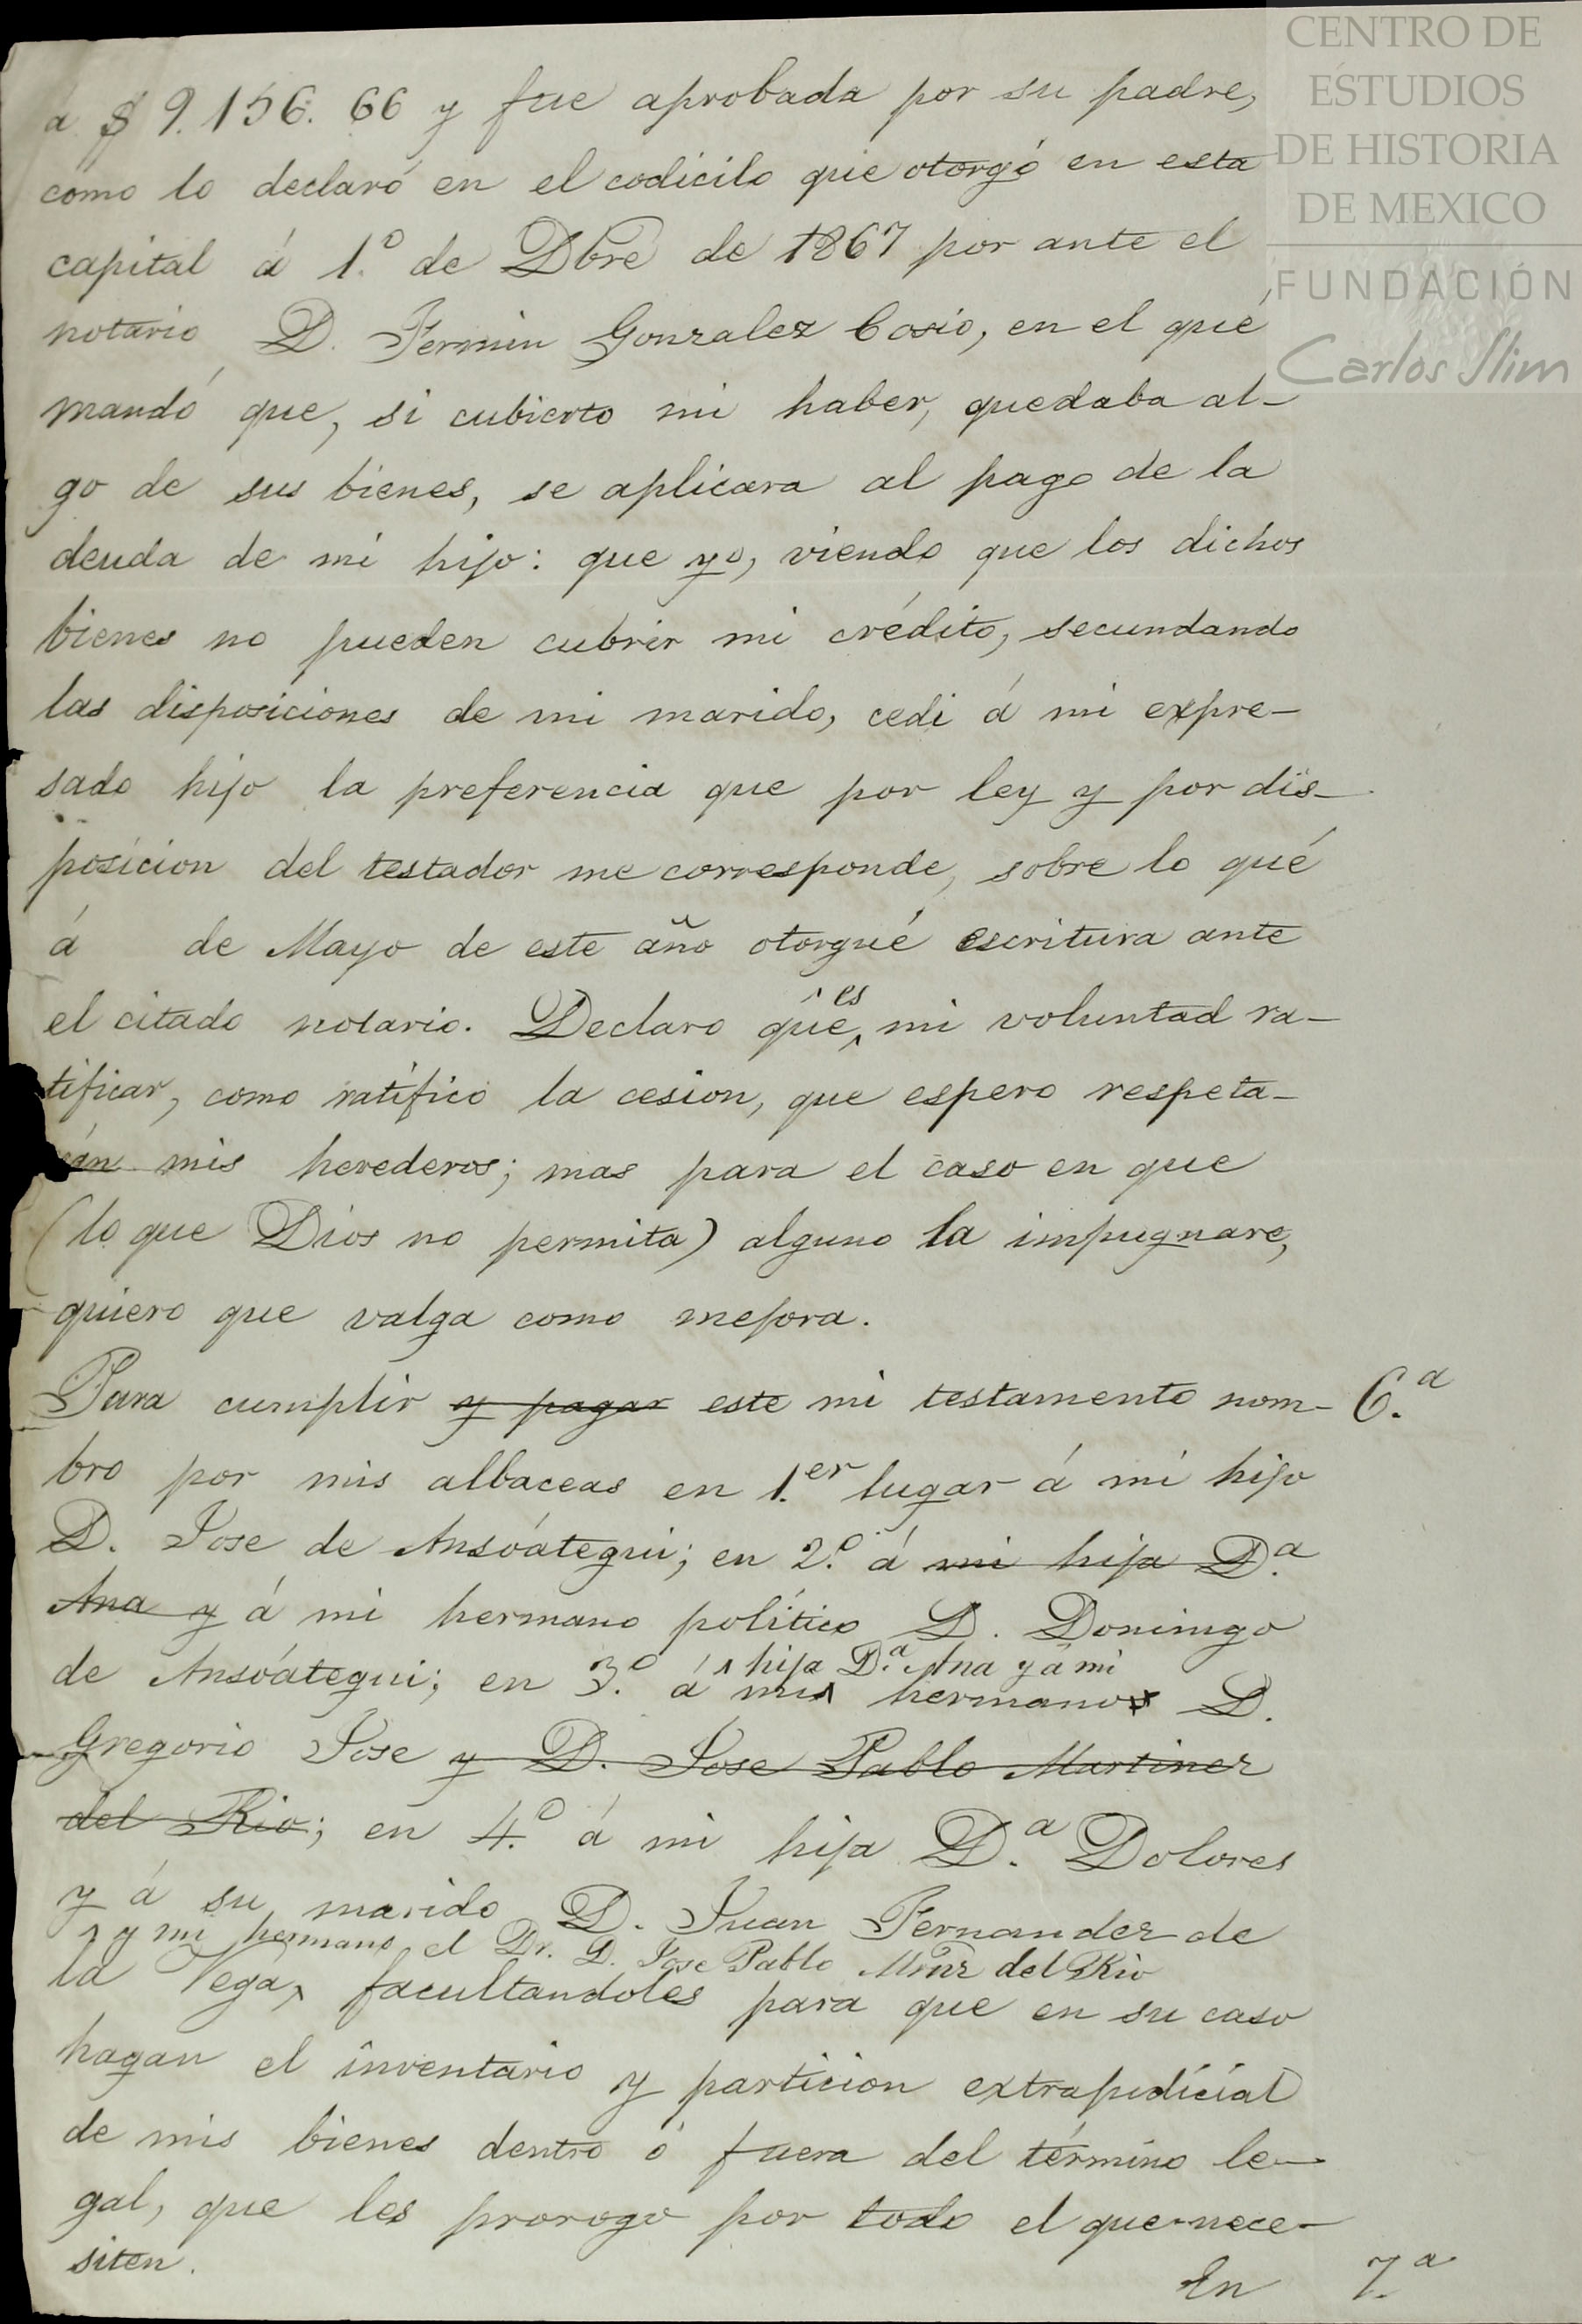 CENTRO DE
ESTUDIOS
DE HISTORIA
DE MEXICO
FUNDACIÓN
Carlos Slim
a $ 9.156. 66 y fue aprobada por su padre,
como lo declaró en el codicilo que otorgó en esta
capital á 1.º de Dbre de 1867 por ante el
notario D. Fermin Gonzalez Cosio, en el qué
mandó que, si cubierto mi haber, quedaba al-
go de sus bienes, se aplicara al pago de la
deuda de mi hijo: que yo, viendo que los dichos
bienes no pueden cubrir mi crédito, secundando
las disposiciones de mi marido, cedi á mi expre-
sado hijo la preferencia que por ley y por dis-
posicion del testador me corresponde, sobre lo qué
á de Mayo de este año otorgué escritura ante
el citado notario. Declaro que es mi voluntad ra-
tificar, como ratifico la cesion, que espero respeta-
rán mis herederos; mas para el caso en que
(lo que Dios no permita) alguno la impugnare,
quiero que valga como mejora.
Para cumplir y pagar este mi testamento nom- 6.ª
bro por mis albaceas en 1.er lugar á mi hijo
D. Jose de Ansoátegui; en 2.º á mi hija D.ª
Ana y á mi hermano político D. Domingo
hija D.ª Ana y á mi
de Ansoátegui; en 3.º á mis hermanos D.
Gregorio Jose y D. Jose Pablo Martinez
del Rio; en 4.º á mi hija D.ª Dolores
y á su marido D. Juan Fernandez de
y mi hermano el Dr. D. Jose Pablo Mrnz del Rio
la Vega, facultandoles para que en su caso
hagan el inventario y particion extrajudicial
de mis bienes dentro ó fuera del término le-
gal, que les prorogo por todo el que nece-
siten.
En 7.ª